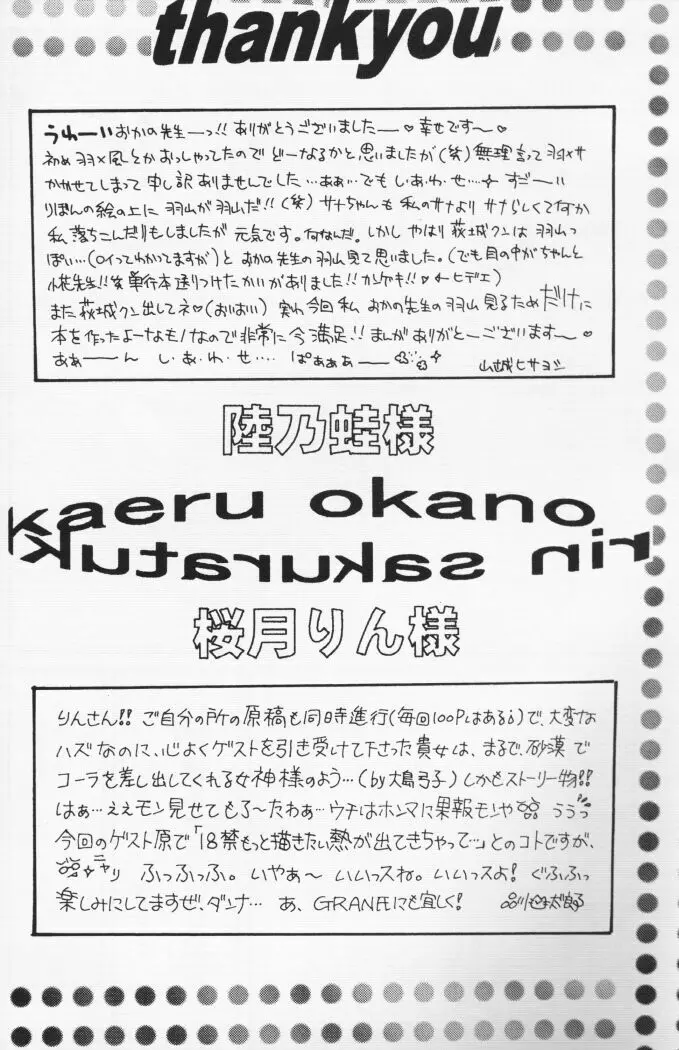 thankyou
うわーいおかの先生ーっ!! ありがとうございましたー♡ 幸せです〜♡
初め 羽×風とか おっしゃってたので どーなるかと 思いましたが (笑) 無理言って 羽×サ
かかせてしまって 申し訳ありませんでした…あぁ…でも し.あ.わ.せ…✧ すごーい
りぼんの絵の上に 羽山が羽山だ!! (笑) サナちゃんも 私のサナより サナらしくてなんか
私 落ちこんだりもしましたが 元気です。何なんだ。しかし やはり 萩城クンは 羽山っ
ぽい…(ロイってわかってますが) と おかの先生の羽山見て思いました。(でも目の中がちゃんと
先生!! 単行本送りつけたかいがありました!! カンゲキ!! ♡←ヒデエ)
また 萩城クン出してネ♡(おいおい) 実わ 今回 私 おかの先生の羽山 見るためだけに
本を作ったよーなもんなので 非常に今 満足!! まんがありがとーございます〜♡
あぁーーん し.あ.わ.せ…. ぱぁぁぁー 山城ヒサヨシ
陸乃蛙様
kaeru okano
rin sakuratuk
桜月りん様
りんさん!! ご自分の所の原稿も同時進行(毎回100Pはある!)で、大変な
ハズなのに、心よくゲストを引き受けて下さった貴女は、まるで、砂漠で
コーラを差し出してくれる女神様のよう…(by大島弓子) しかもストーリー物!!
はぁ…ええモン見せてもろ〜たわぁ…ウチはホンマに果報モンや ううっ
今回のゲスト原で「18禁もっと描きたい熱が出てきちゃって…」とのコトですが、
ニヤリ ふっふっふ。 いやぁ〜 いいっスね。いいっスよ! ぐふふっ
楽しみにしてますぜ、ダンナ… あ、GRANEにも宜しく!